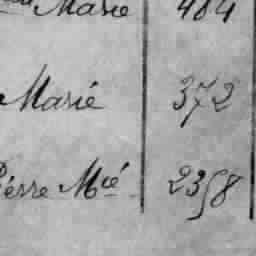 Marie 484
Marié 372
Pierre Mié 2358